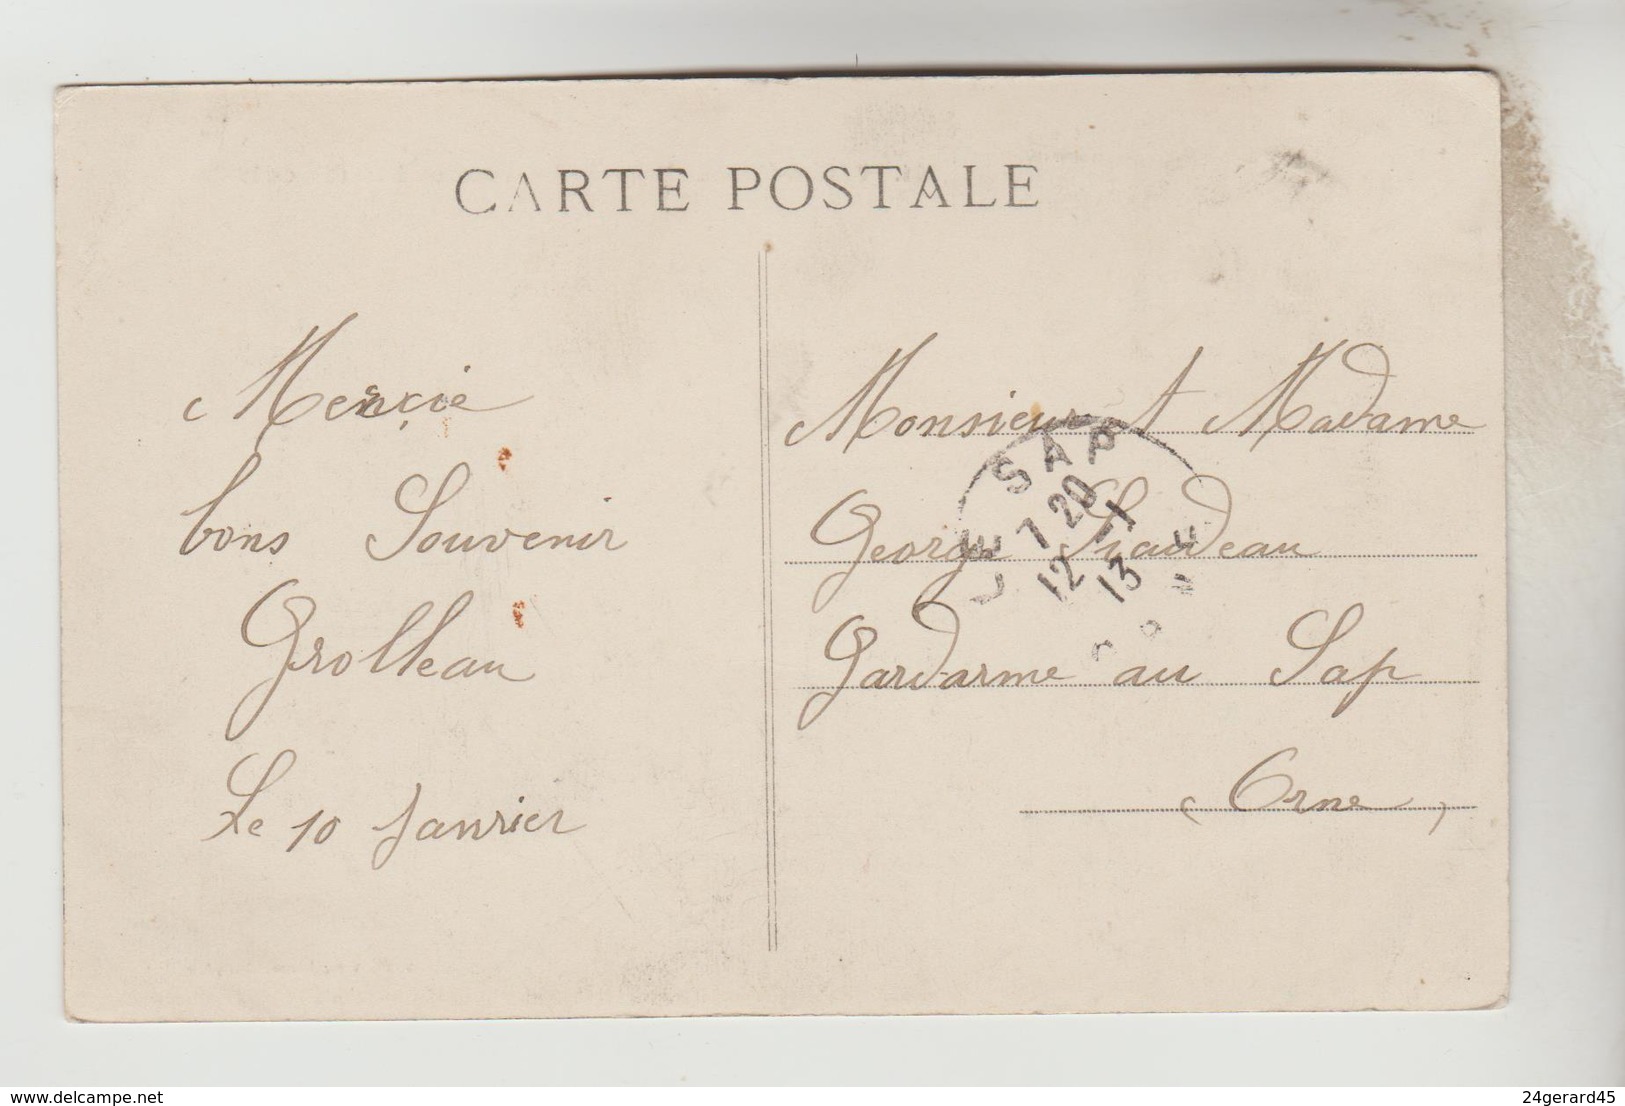 CARTE POSTALE
Merçie
bons Souvenir
Grolleau
Le 10 Janvier
Monsieur t Madame
George
Gardarme au Sap
Orne,
LE SAP
7 20
12 -1
13
delcampe.net
24gerard45